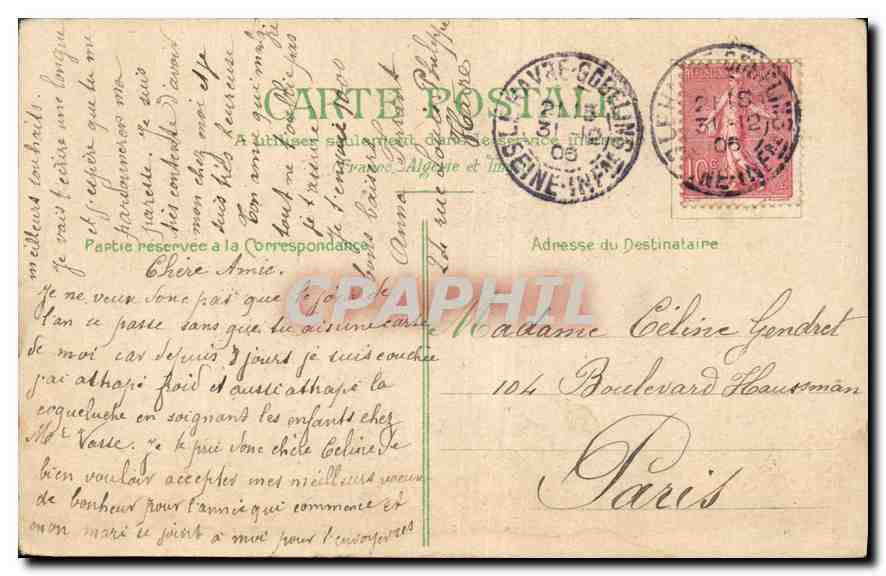 CARTE POSTALE
A utiliser seulement dans le service intérieur
France, Algérie et
Partie réservée à la Correspondance
Adresse du Destinataire
LE HAVRE-GOBELINS
21 15
31 -12
06
SEINE-INFRE
LE HAVRE-GOBELINS
21 15
31 -12
06
SEINE-INFRE
10c
CPAPHIL
Chère Amie.
Je ne veux donc pas que le jour de
l'an ce passe sans que tu ais une carte
de moi car depuis 8 jours je suis couchée
j'ai athapé froid et aussi athapé la
coqueluche en soignant les enfants chez
Mme Vasse. Je te prie donc chère Celine de
bien vouloir accepter mes meilleurs voeux
de bonheur pour l'année qui commence et
mon mari se joint à moi pour t'envoyer ses
meilleurs souhaits.
Je vais t'écrire une longue
et j'espère que tu me
pardonneras ma
paresse. Je suis
très contente d'avoir
mon chez moi et je
suis très heureuse
Ton amie qui malgré
tout ne t'oublie pas
je t'assure
Je t'envoie 1000
bons baisers
Anna
201 rue Louis Philippe
Havre
Madame Céline Gendret
104 Boulevard Haussmân
Paris